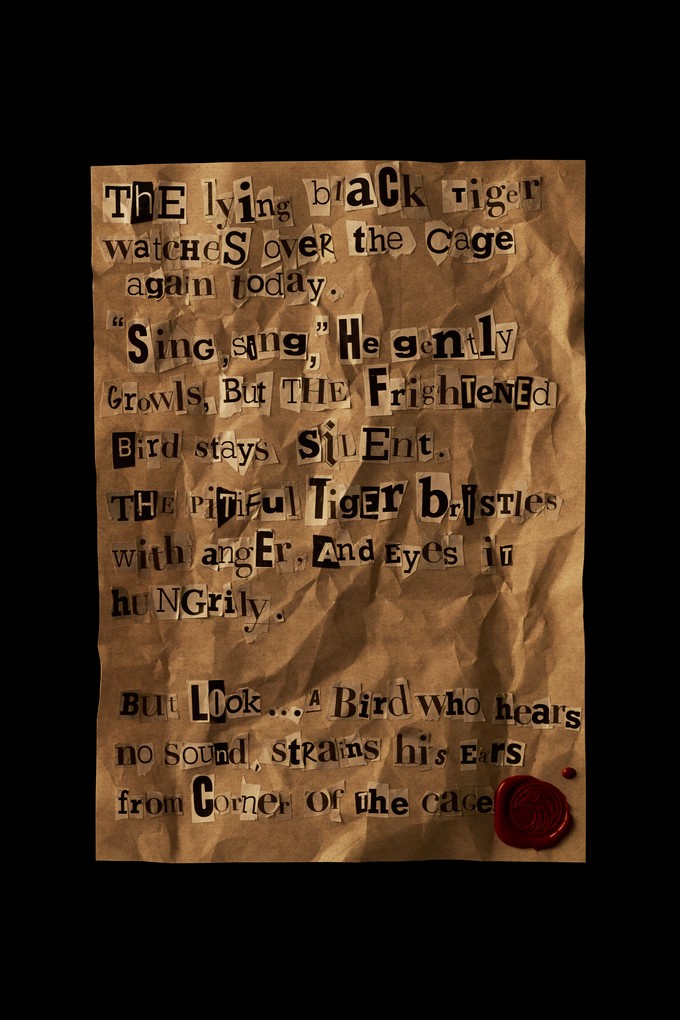 ThE lying blaCk Tiger
watcHeS oveR the Cage
again today.
“SinG, sing,” He gently
Growls, But THE FrighTENEd
Bird stays SiLEnt.
THE PiTiFul TigEr brIsTles
with angEr, And EyEs iT
huNGrily.
But LOok... A Bird who hears
no sound, stRains his Ears
from Corner of The cage